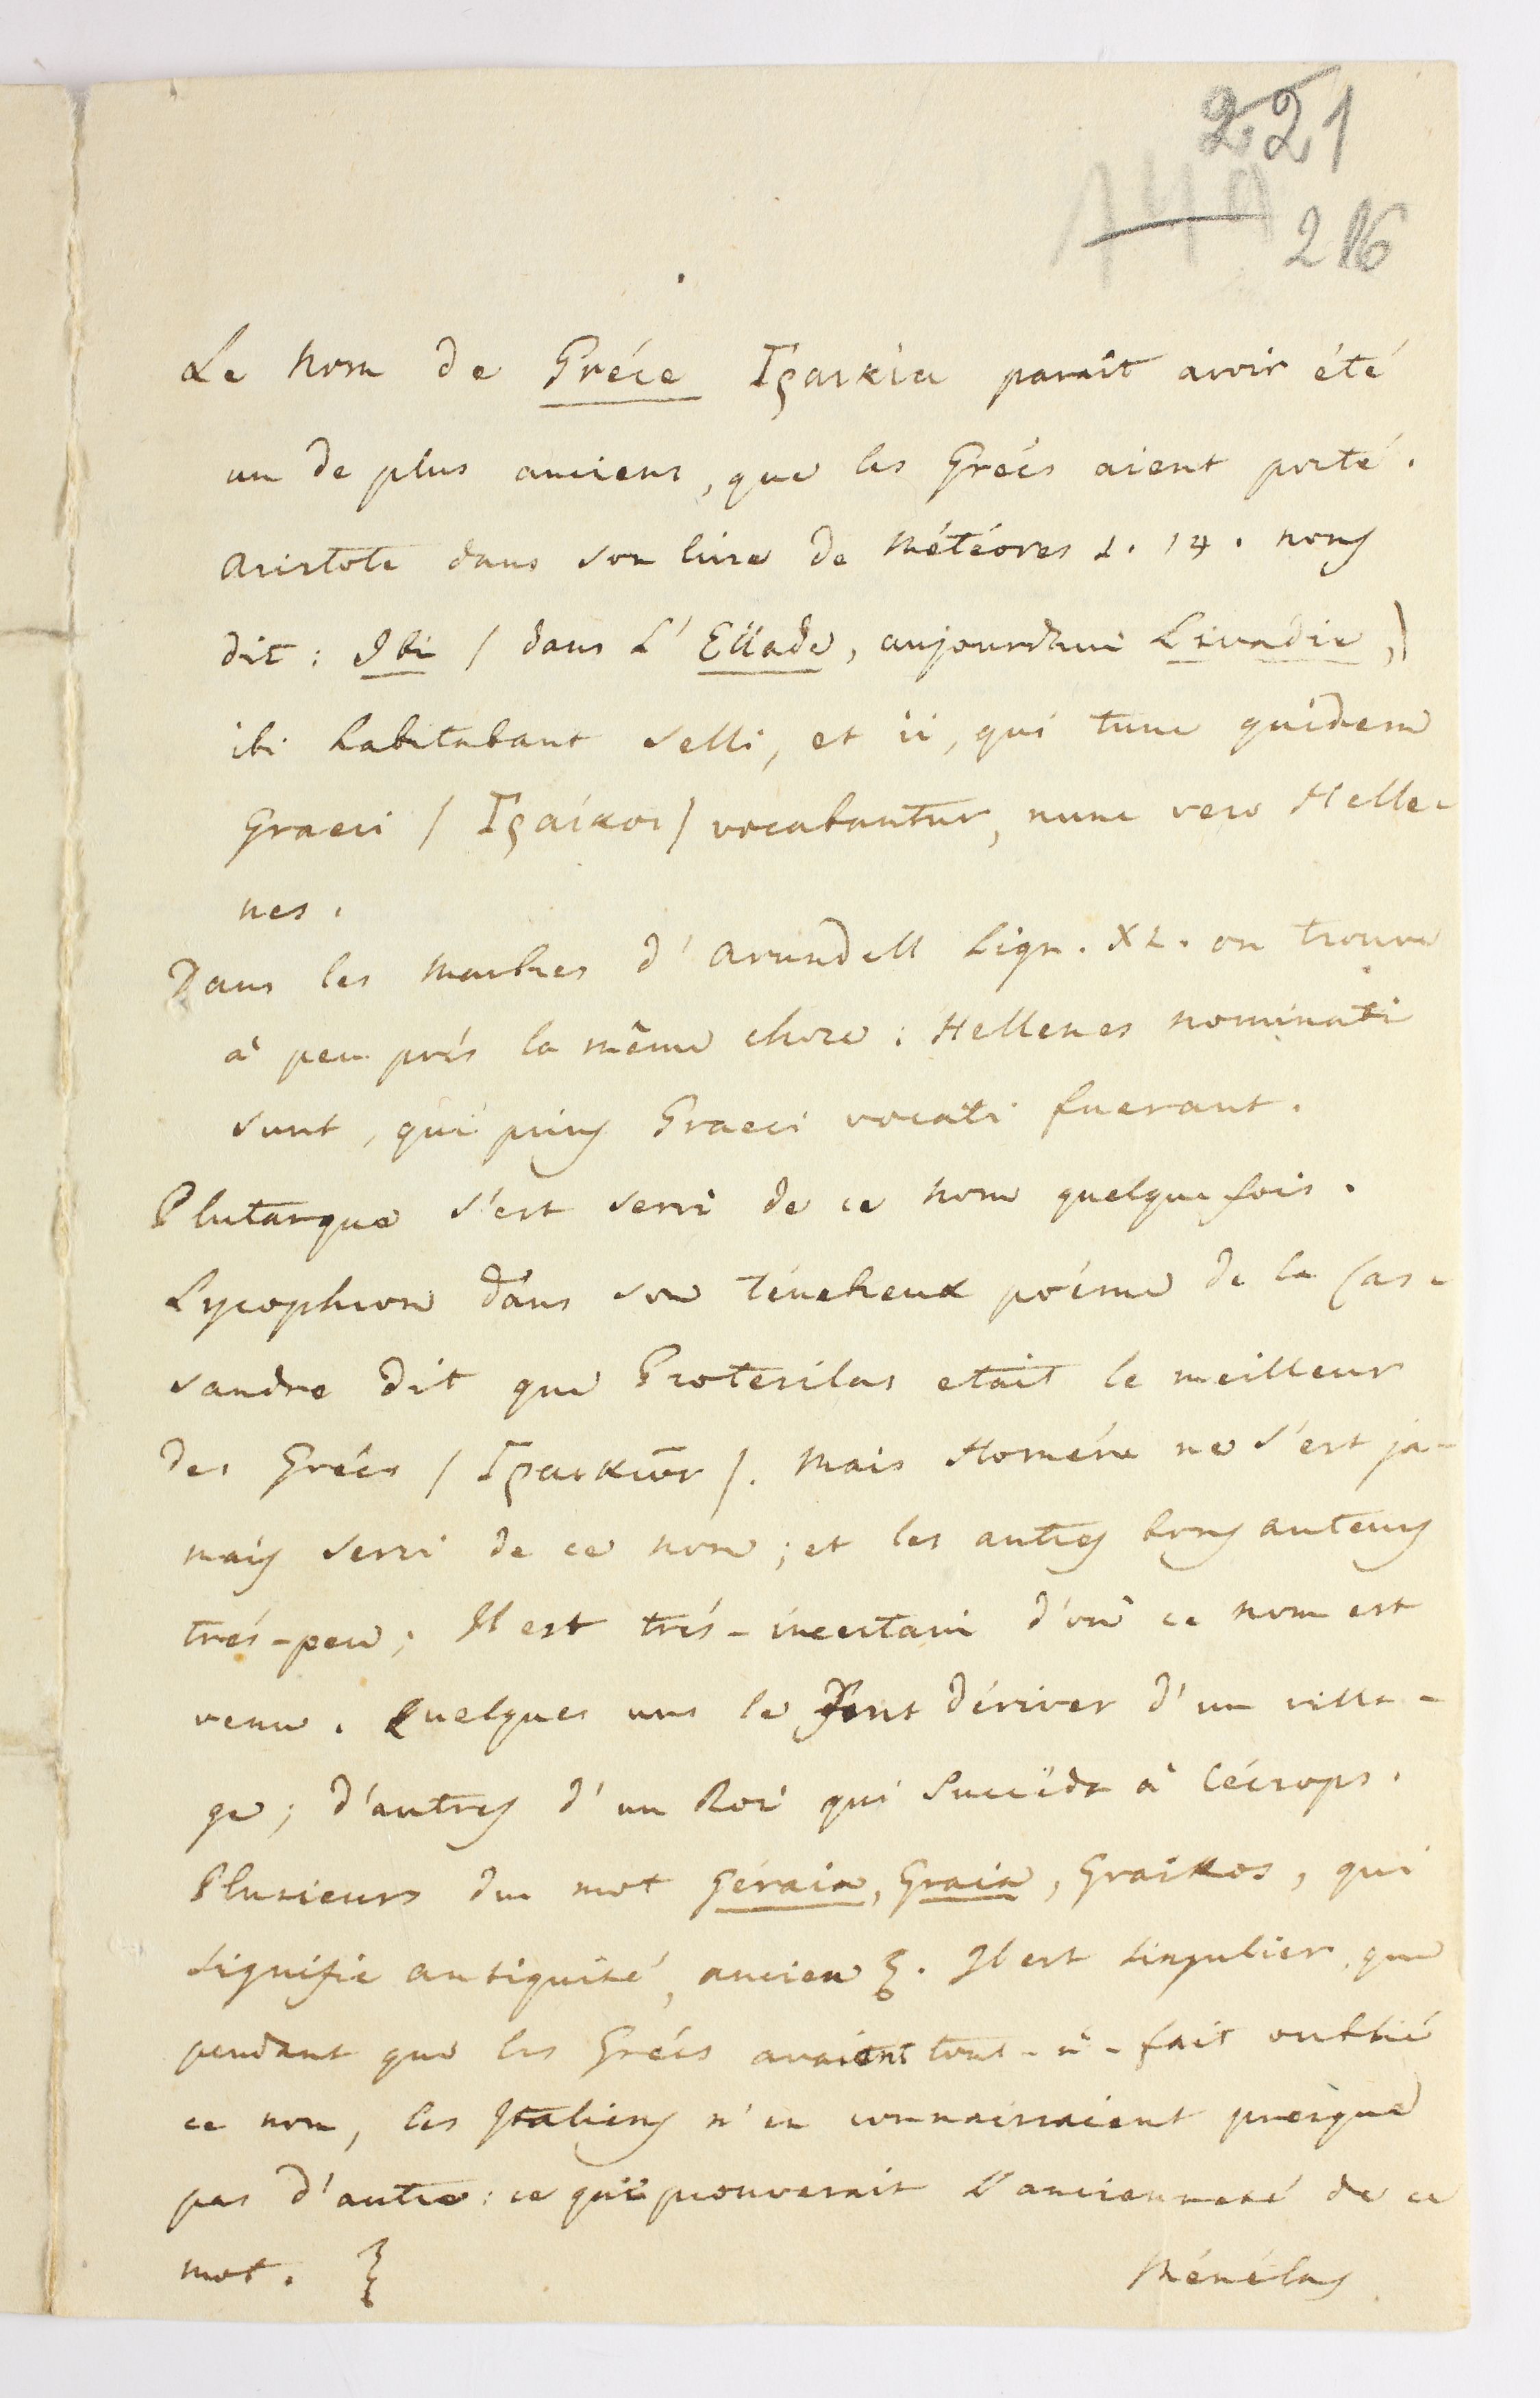 221
149 216
Le nom de Gréce Γραικία paraît avoir été
un de plus anciens, que les Grécs aient porté.
Aristote dans son livre de Météores 1. 14. nous
dit: Ibi / dans L'Ellade, aujourdhui Livadie,)
ibi habitabant Selli, et ii, qui tunc quidem
Graeci / Γραίκοι / vocabantur, nunc vero Helle-
nes.
Dans les marbres d'Arundell Lign. XL. on trouve
à peu prés la même chose: Hellenes nominati
sunt, qui prius Graeci vocati fuerant.
Plutarque s'est servi de ce nom quelque fois.
Lycophron dans son ténebreux poéme de la Cas-
sandre dit que Protesilas etait le meilleur
des Grécs / Γραικῶν /. Mais Homére ne s'est ja-
mais servi de ce nom; et les autres bons auteurs
trés-peu; Il est trés-incertain d'où ce nom est
venu. Quelques uns le font dériver d'un villa-
ge; d'autres d'un Roi qui succéda à Cécrops.
Plusieurs du mot Géraia, Graia, Graikos, qui
signifie antiquité, ancien. Il est singulier que
pendant que les Grécs avaient tout-à-fait oublié
ce nom, les Italiens n'en connaissaient presque
pas d'autre: ce qui prouverait l'ancienneté de ce
mot. Ménélas